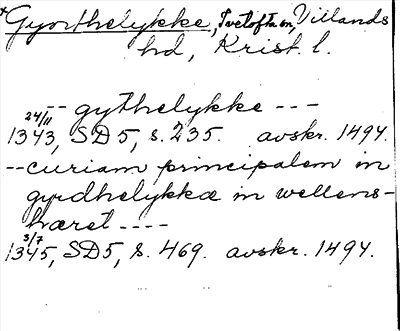 *Gyorthelykke, Tvetofta sn, Villands
hd, Krist. l.
-- gythelykke ---
24/11
1343, SD 5, s. 235. avskr. 1494.
-- curiam principalem in
gyrdhelykkæ in wellens-
hæret ----
3/7
1345, SD 5, s. 469. avskr. 1494.